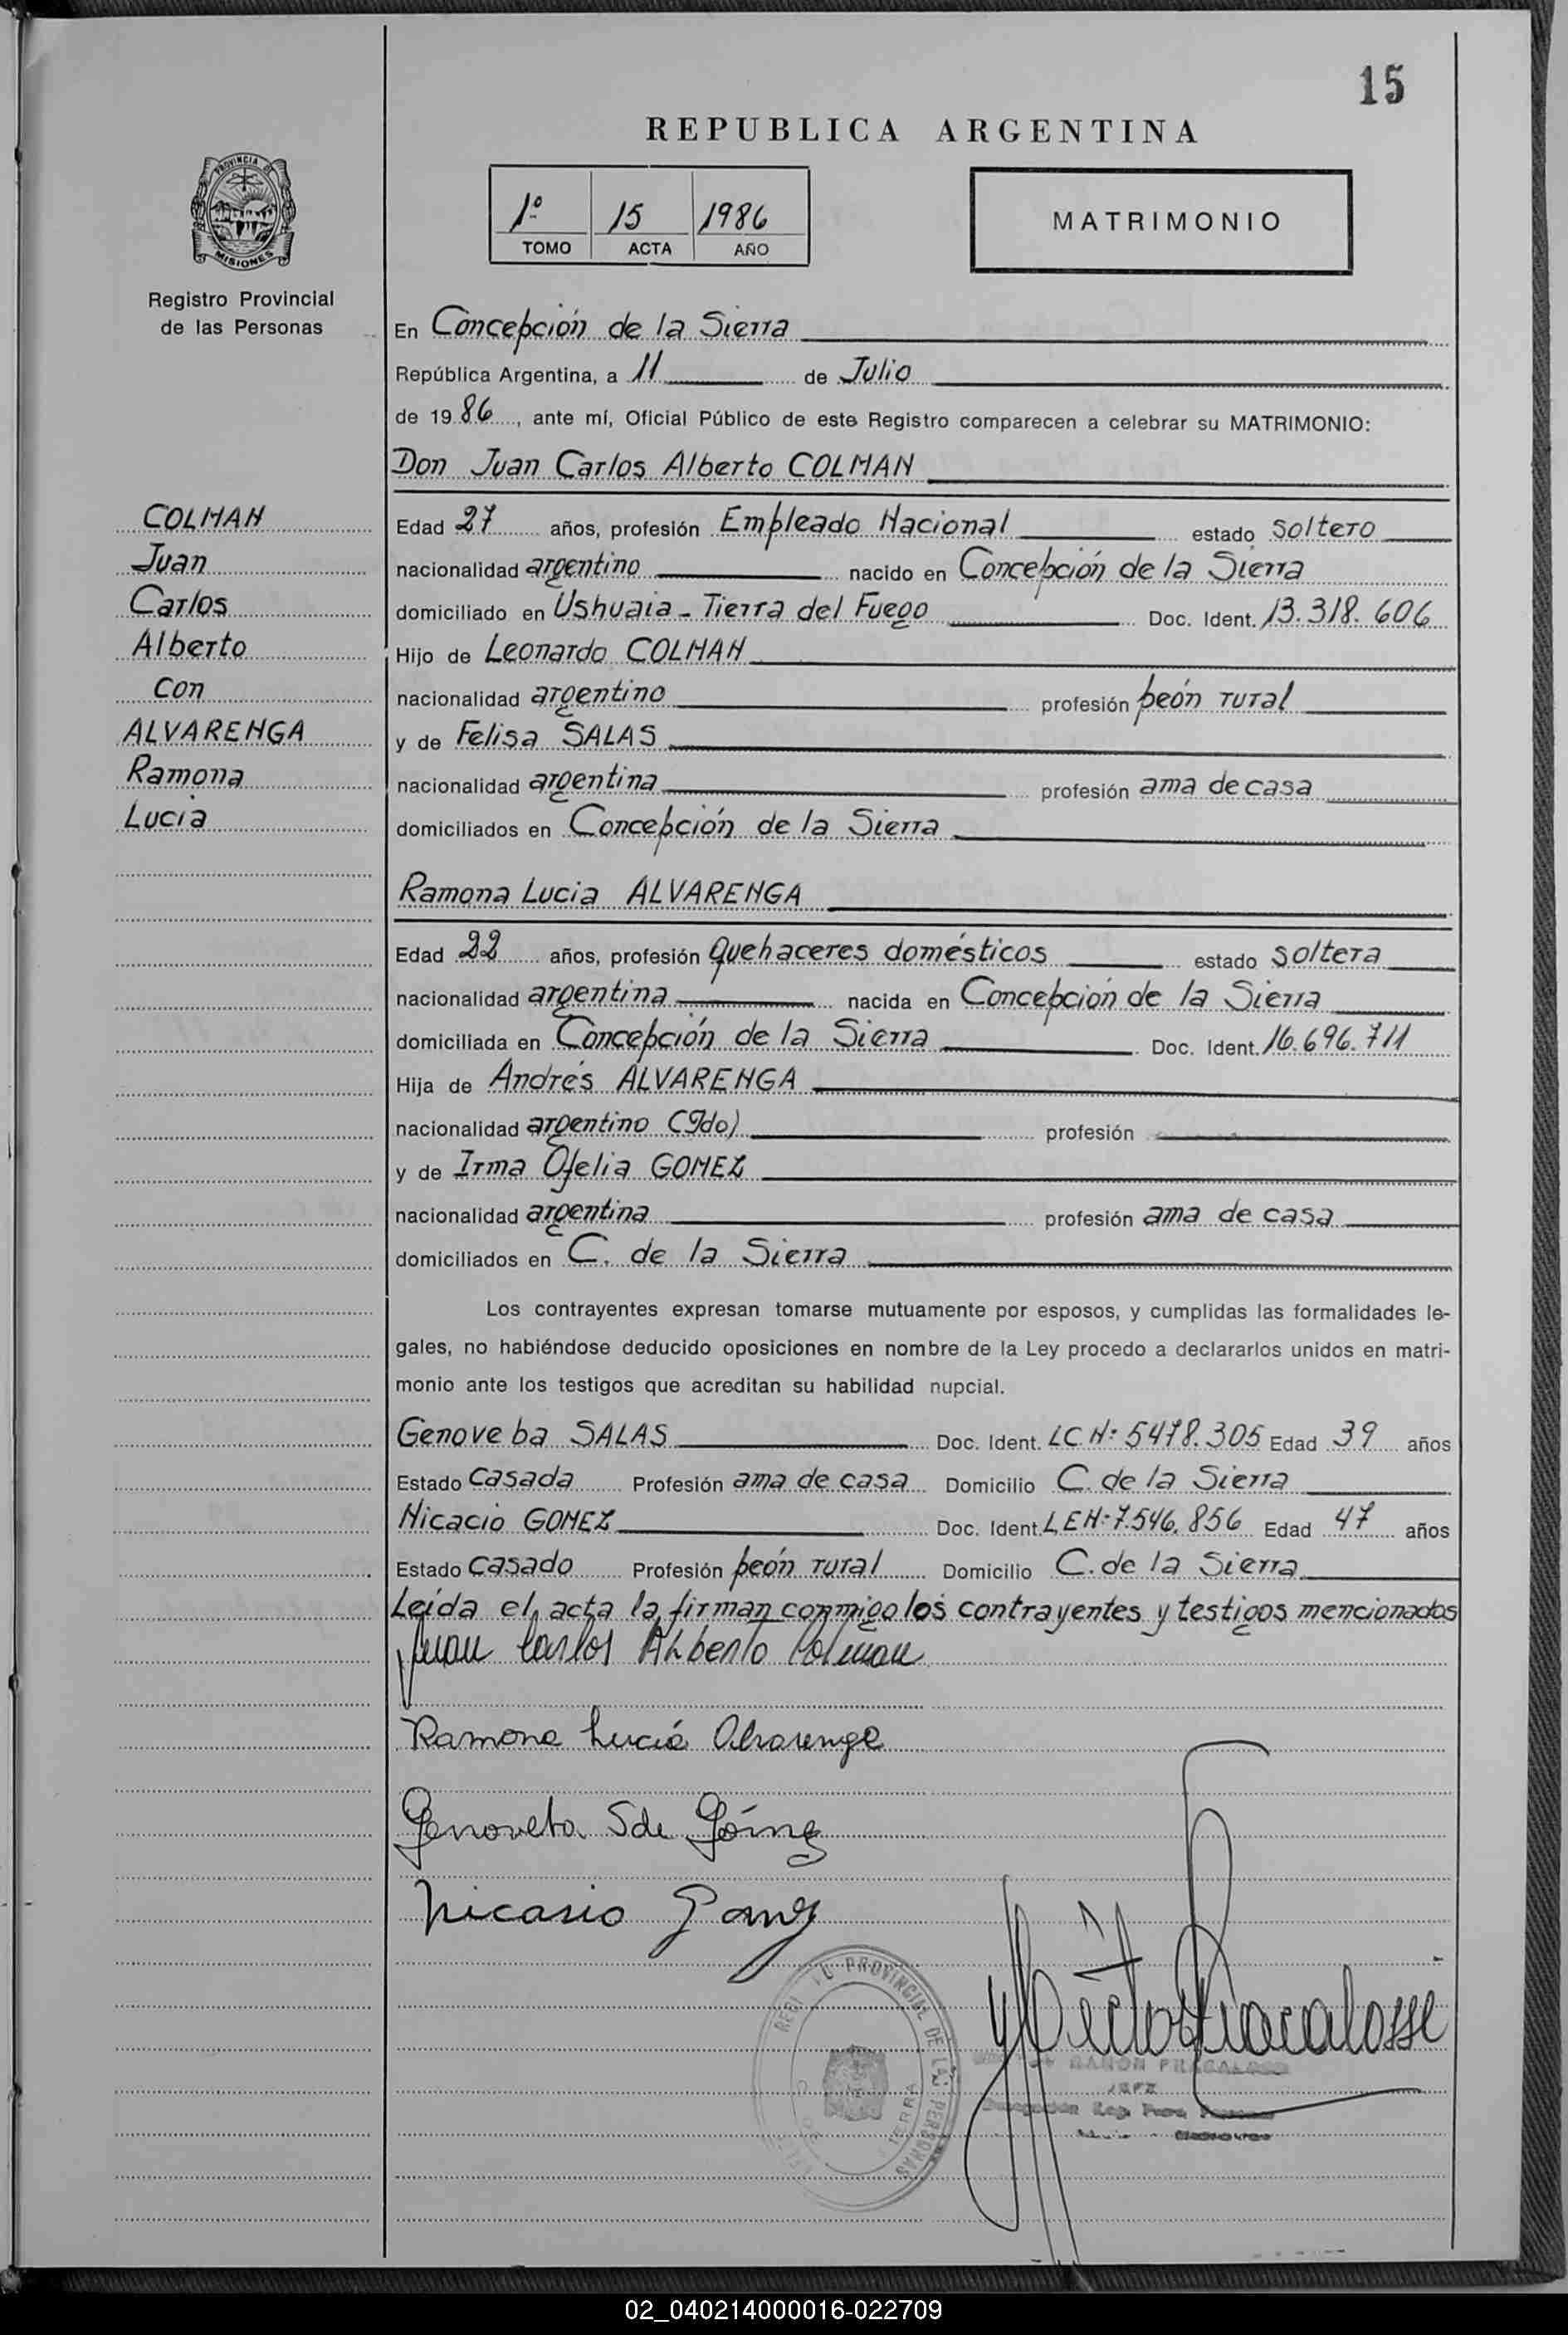 15
REPUBLICA ARGENTINA
PROVINCIA DE
MISIONES
Registro Provincial
de las Personas
1º 15 1986
TOMO ACTA AÑO
MATRIMONIO
En Concepción de la Sierra
República Argentina, a 11 de Julio
de 1986, ante mí, Oficial Público de este Registro comparecen a celebrar su MATRIMONIO:
Don Juan Carlos Alberto COLMAN
COLMAN
Juan
Carlos
Alberto
Con
ALVARENGA
Ramona
Lucia
Edad 27 años, profesión Empleado Nacional estado soltero
nacionalidad argentino nacido en Concepción de la Sierra
domiciliado en Ushuaia - Tierra del Fuego Doc. Ident. 13.318.606
Hijo de Leonardo COLMAN
nacionalidad argentino profesión peón rural
y de Felisa SALAS
nacionalidad argentina profesión ama de casa
domiciliados en Concepción de la Sierra
Ramona Lucia ALVARENGA
Edad 22 años, profesión quehaceres domésticos estado soltera
nacionalidad argentina nacida en Concepción de la Sierra
domiciliada en Concepción de la Sierra Doc. Ident. 16.696.711
Hija de Andrés ALVARENGA
nacionalidad argentino (Fdo) profesión
y de Irma Ofelia GOMEZ
nacionalidad argentina profesión ama de casa
domiciliados en C. de la Sierra
Los contrayentes expresan tomarse mutuamente por esposos, y cumplidas las formalidades le-
gales, no habiéndose deducido oposiciones en nombre de la Ley procedo a declararlos unidos en matri-
monio ante los testigos que acreditan su habilidad nupcial.
Genoveba SALAS Doc. Ident. LC.Nº 5478.305 Edad 39 años
Estado Casada Profesión ama de casa Domicilio C. de la Sierra
Nicacio GOMEZ Doc. Ident. LENº 7.546.856 Edad 47 años
Estado Casado Profesión peón rural Domicilio C. de la Sierra
Leída el acta la firman conmigo los contrayentes y testigos mencionados
Juan Carlos Alberto Colman
Ramona Lucía Alvarenga
Genoveba S de Gómez
Nicasio Gomez
REGI PROVINCIAL DE LAS PERSONAS
RAMON FRACALOSSI
JEFE
02_040214000016-022709